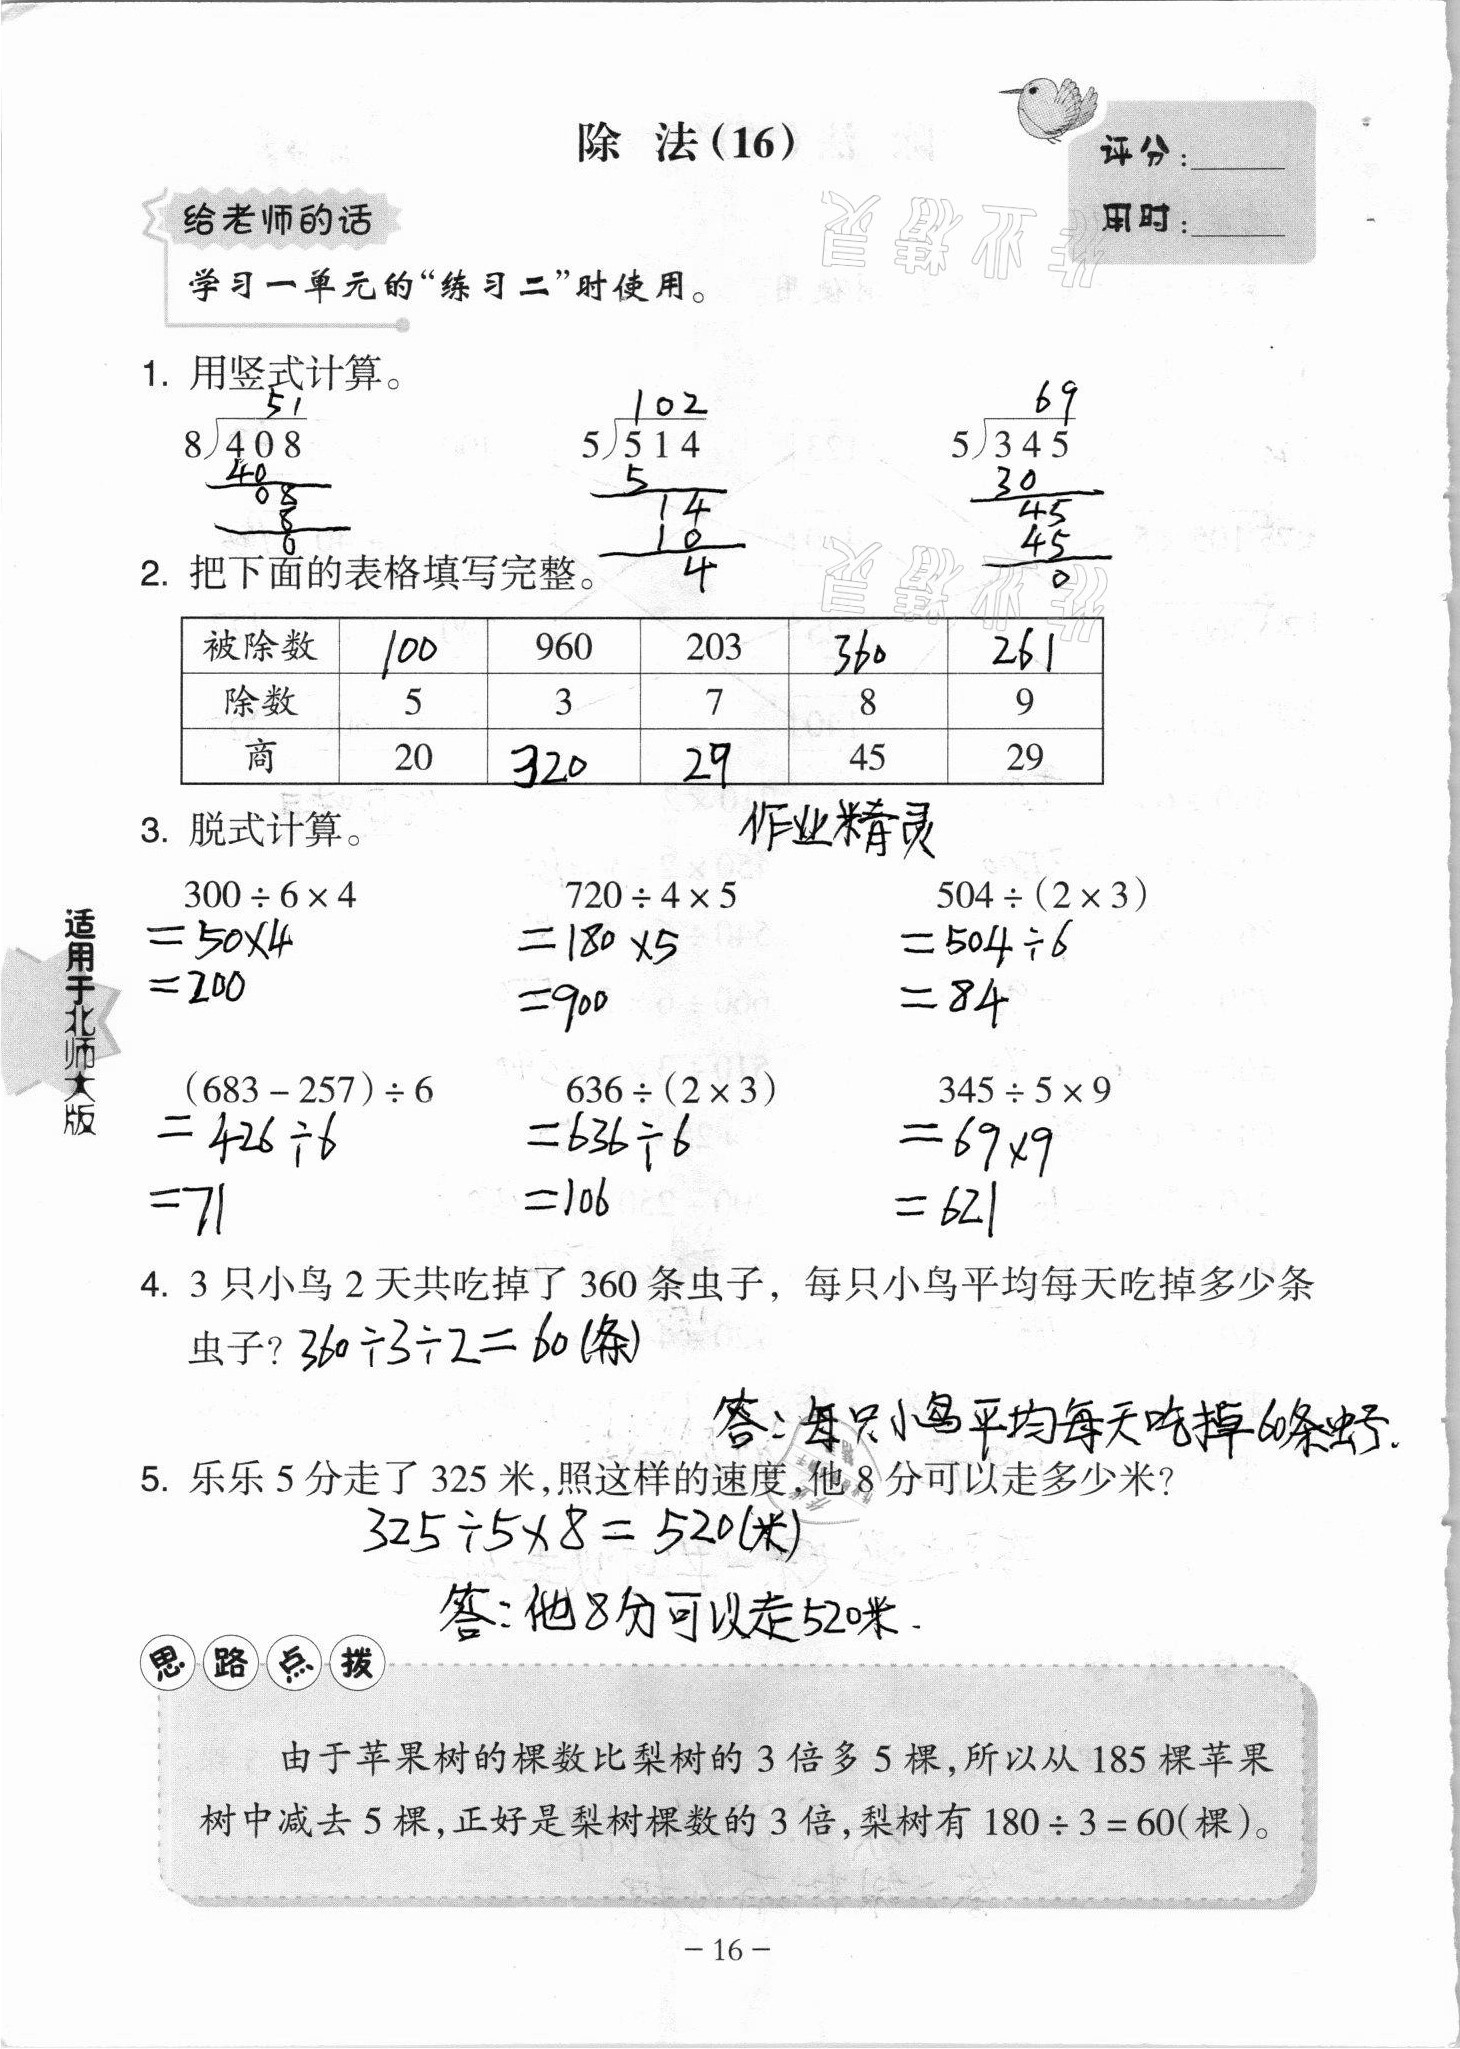 除 法(16)
评分:
用时:
给老师的话
学习一单元的“练习二”时使用。
1. 用竖式计算。
51 102 69
8 408 5 514 5 345
40 5 30
08 14 45
8 10 45
0 4 0
2. 把下面的表格填写完整。
被除数 100 960 203 360 261
除数 5 3 7 8 9
商 20 320 29 45 29
作业精灵
3. 脱式计算。
300÷6×4 720÷4×5 504÷(2×3)
=50×4 =180×5 =504÷6
=200 =900 =84
(683-257)÷6 636÷(2×3) 345÷5×9
=426÷6 =636÷6 =69×9
=71 =106 =621
4. 3只小鸟2天共吃掉了360条虫子,每只小鸟平均每天吃掉多少条
虫子?360÷3÷2=60(条)
答:每只小鸟平均每天吃掉60条虫子.
5. 乐乐5分走了325米,照这样的速度,他8分可以走多少米?
325÷5×8=520(米)
答:他8分可以走520米.
思路点拨
由于苹果树的棵数比梨树的3倍多5棵,所以从185棵苹果
树中减去5棵,正好是梨树棵数的3倍,梨树有180÷3=60(棵)。
适用于北师大版
-16-
作业精灵
作业精灵